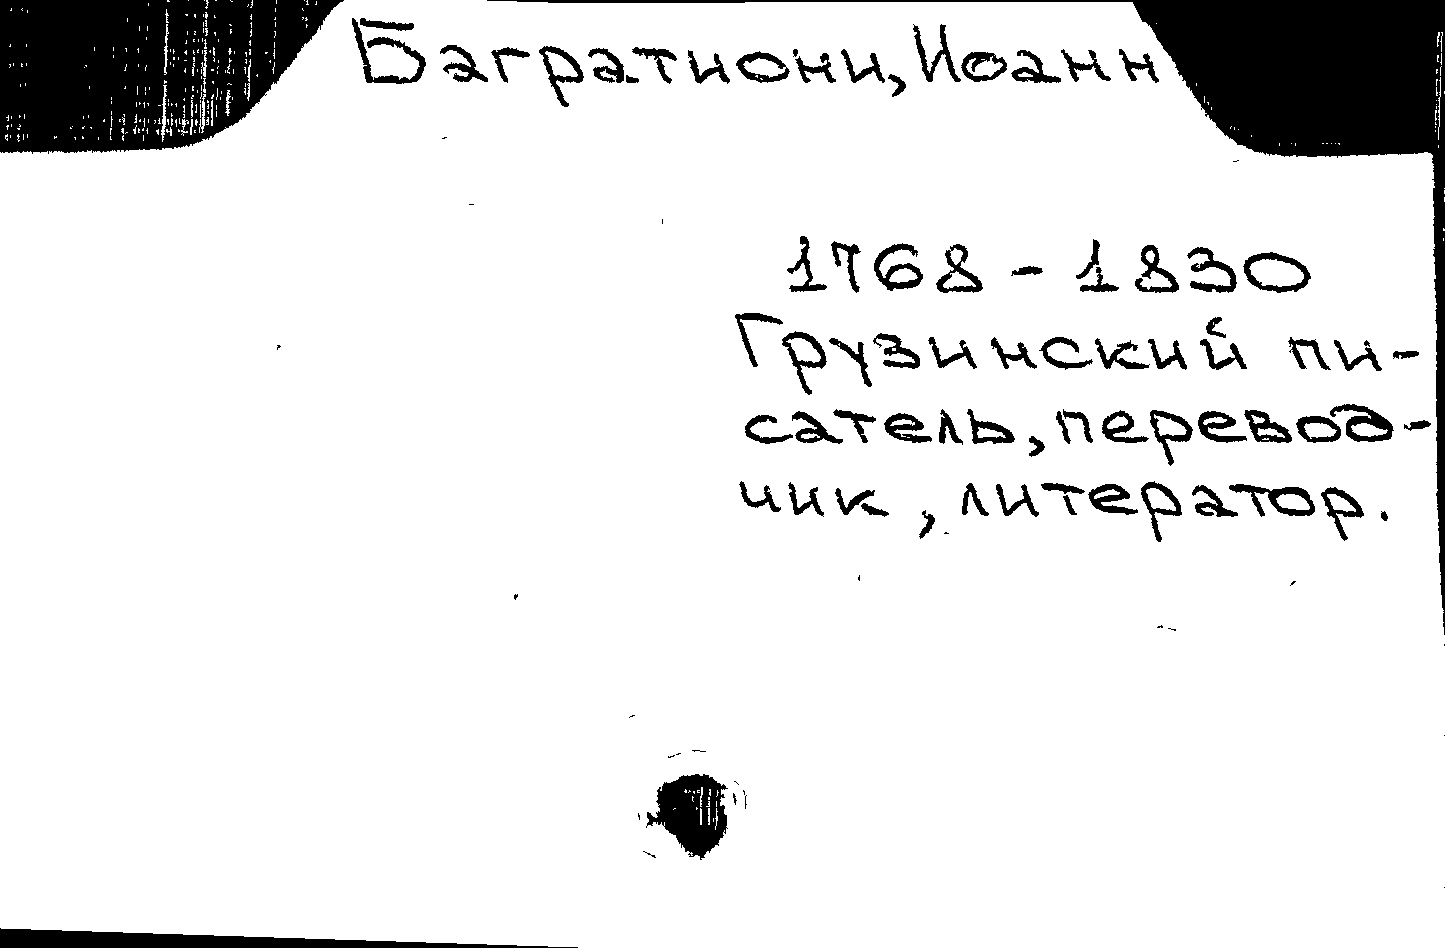 Багратиони, Иоанн
1768 - 1830
Грузинский пи-
сатель, перевод-
чик, литератор.